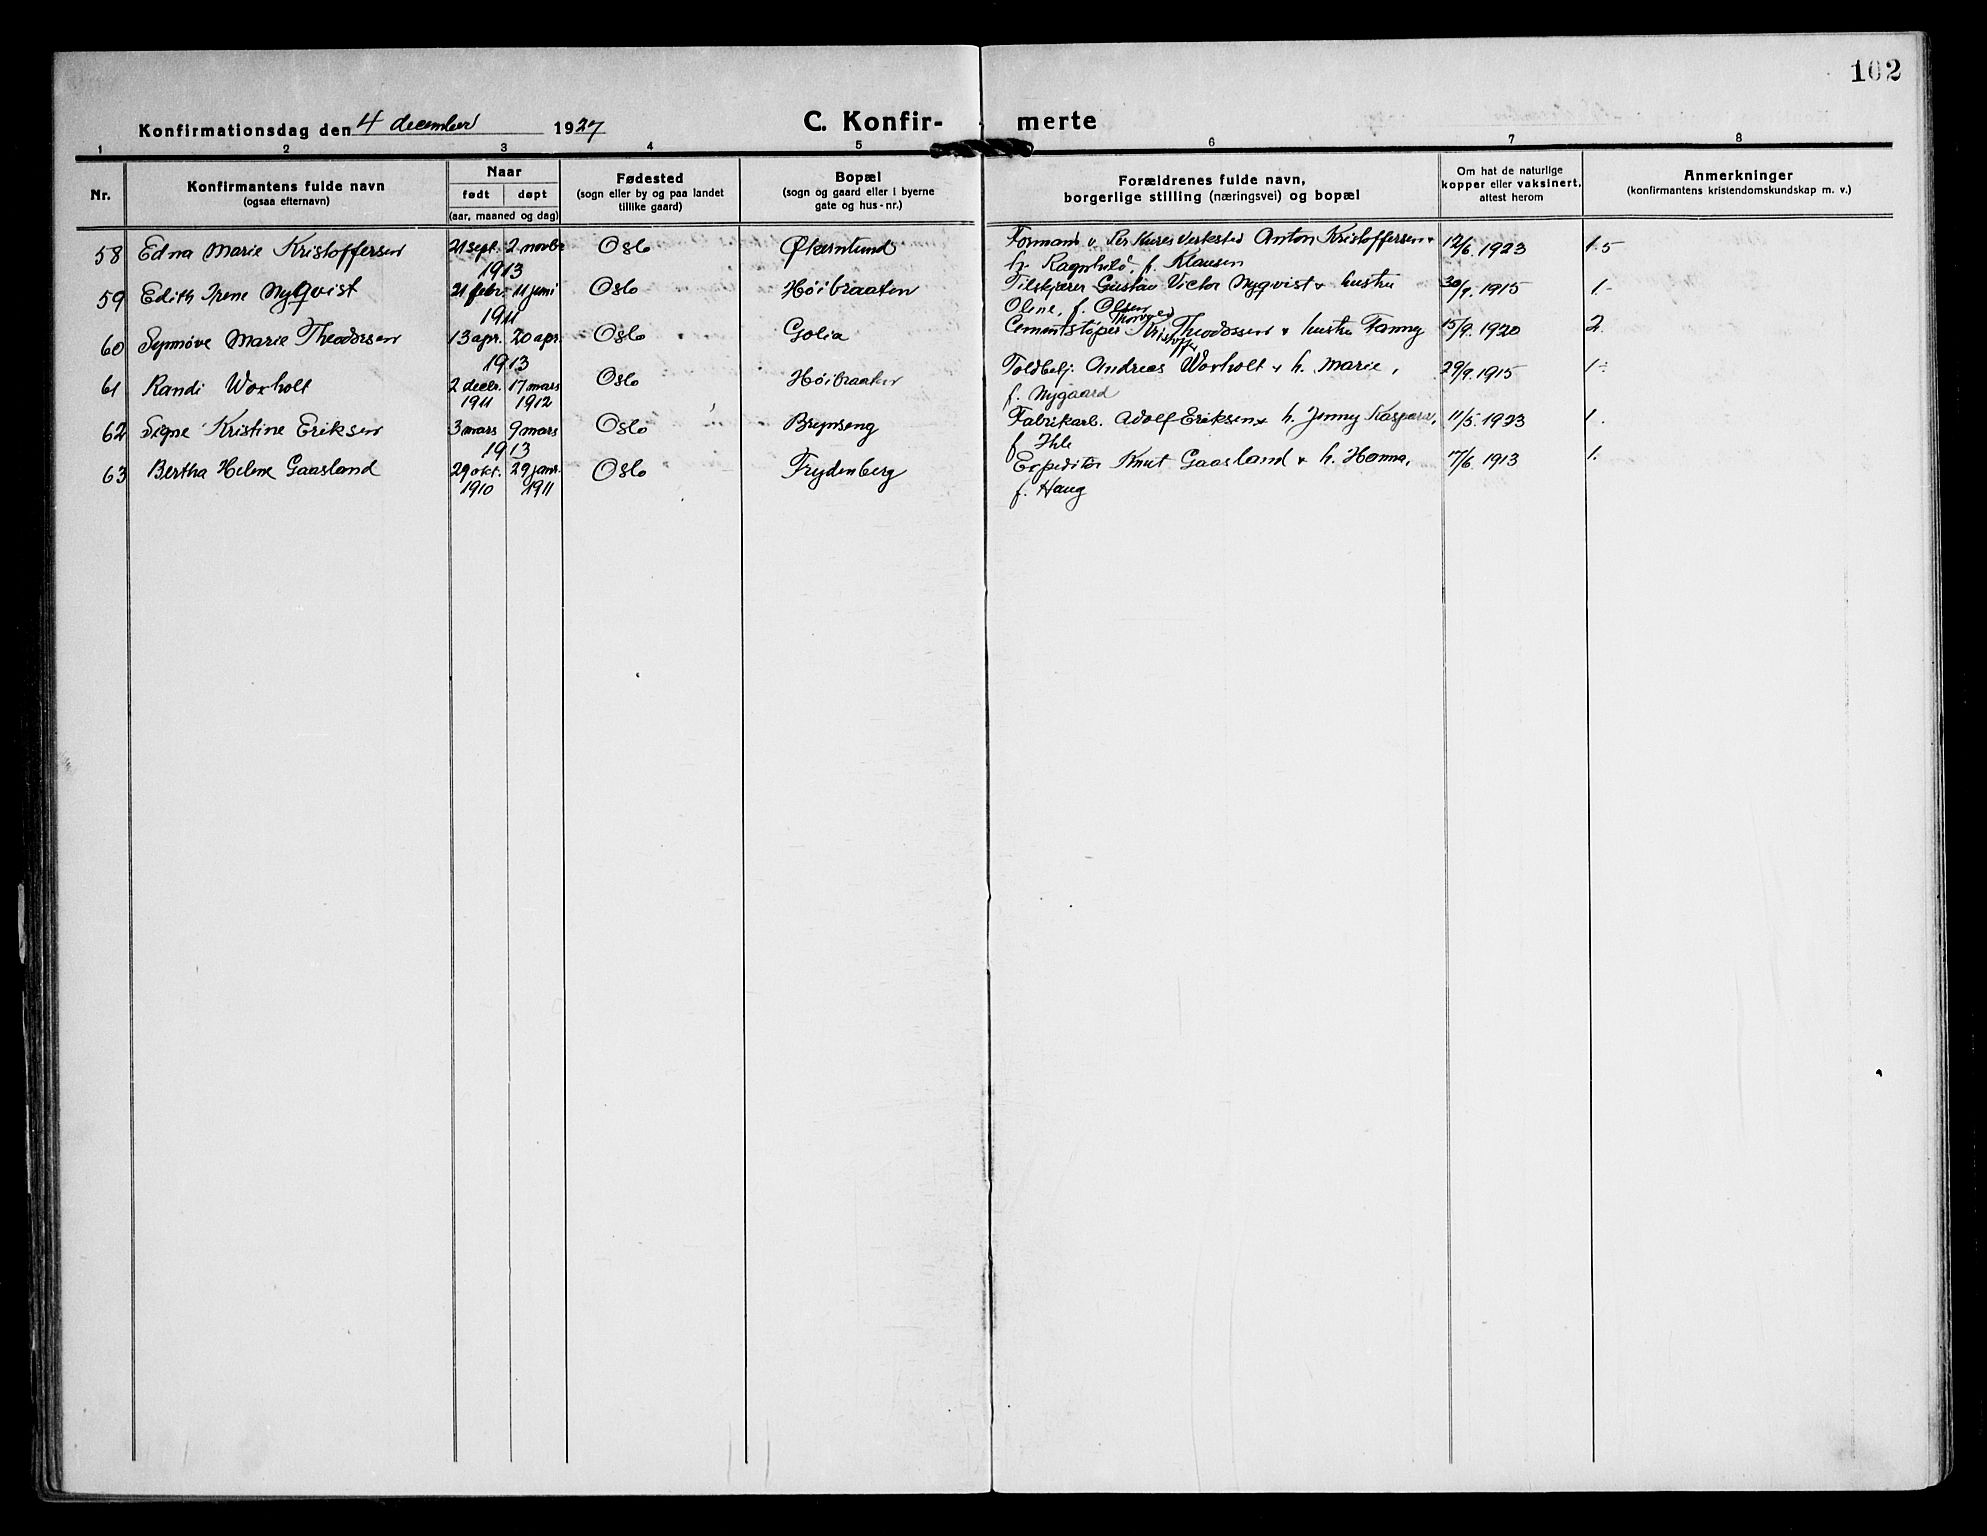 102
Konfirmationsdag den 4 december 1927
C. Konfir- merte
1 2 3 4 5 6 7 8
Nr.
Konfirmantens fulde navn
(ogsaa efternavn)
Naar
født døpt
(aar, maaned og dag)
Fødested
(sogn eller by og paa landet
tillike gaard)
Bopæl
(sogn og gaard eller i byerne
gate og hus-nr.)
Forældrenes fulde navn,
borgerlige stilling (næringsvei) og bopæl
Om hat de naturlige
kopper eller vaksinert,
attest herom
Anmerkninger
(konfirmantens kristendomskundskap m. v.)
58 Edna Marie Kristoffersen 21 sept. 2 novbr Oslo Økernlund Formand v. Per Kures Verksted Anton Kristoffersen + 12/6. 1923 1.5
1913 h. Ragnhild, f. Klausen
59 Edith Irene Nyqvist 21 febr. 11 juni Oslo Høibraaten Gustav Victor Nyqvist + hustru 30/9. 1915 1.-
1911 Oline, f. Olsen
60 Synnøve Marie Theodorsen 13 apr. 20 apr. Oslo Golia Cementstøper Kristoffer Thorvald Theodorsen + hustru Fanny 15/9. 1920 2.
1913
61 Randi Woxholt 2 decbr. 17 mars Oslo Høibraaten Toldbetj. Andreas Woxholt + h. Marie, 29/9. 1915 1-
1911 1912 f. Nygaard
62 Signe Kristine Eriksen 3 mars 9 mars Oslo Brynseng Fabrikarb. Adolf Eriksen + h. Jenny Kaspara, 11/5. 1923 1.
1913 f. Ihle
63 Bertha Helene Gaasland 29 okt. 29 janr. Oslo Frydenberg Expeditør Knut Gaasland + h. Hanna, 17/6. 1913 1.
1910 1911 f. Haug